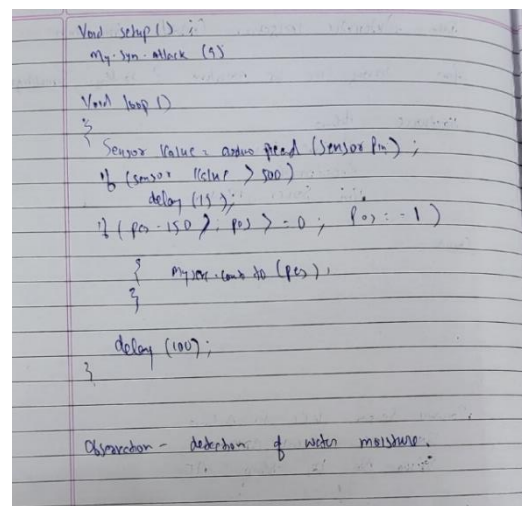 Void setup () ;
My. Syn. attack (9)
Void loop ()
{
Sensor Value = read (Sensor Pin) ;
if (sensor Value > 500)
delay (15);
if (pos - 150 ; pos > = 0 ; pos = - 1 )
{ (pos) ,
}
delay (100) ;
}
Observation - detection of water moisture.